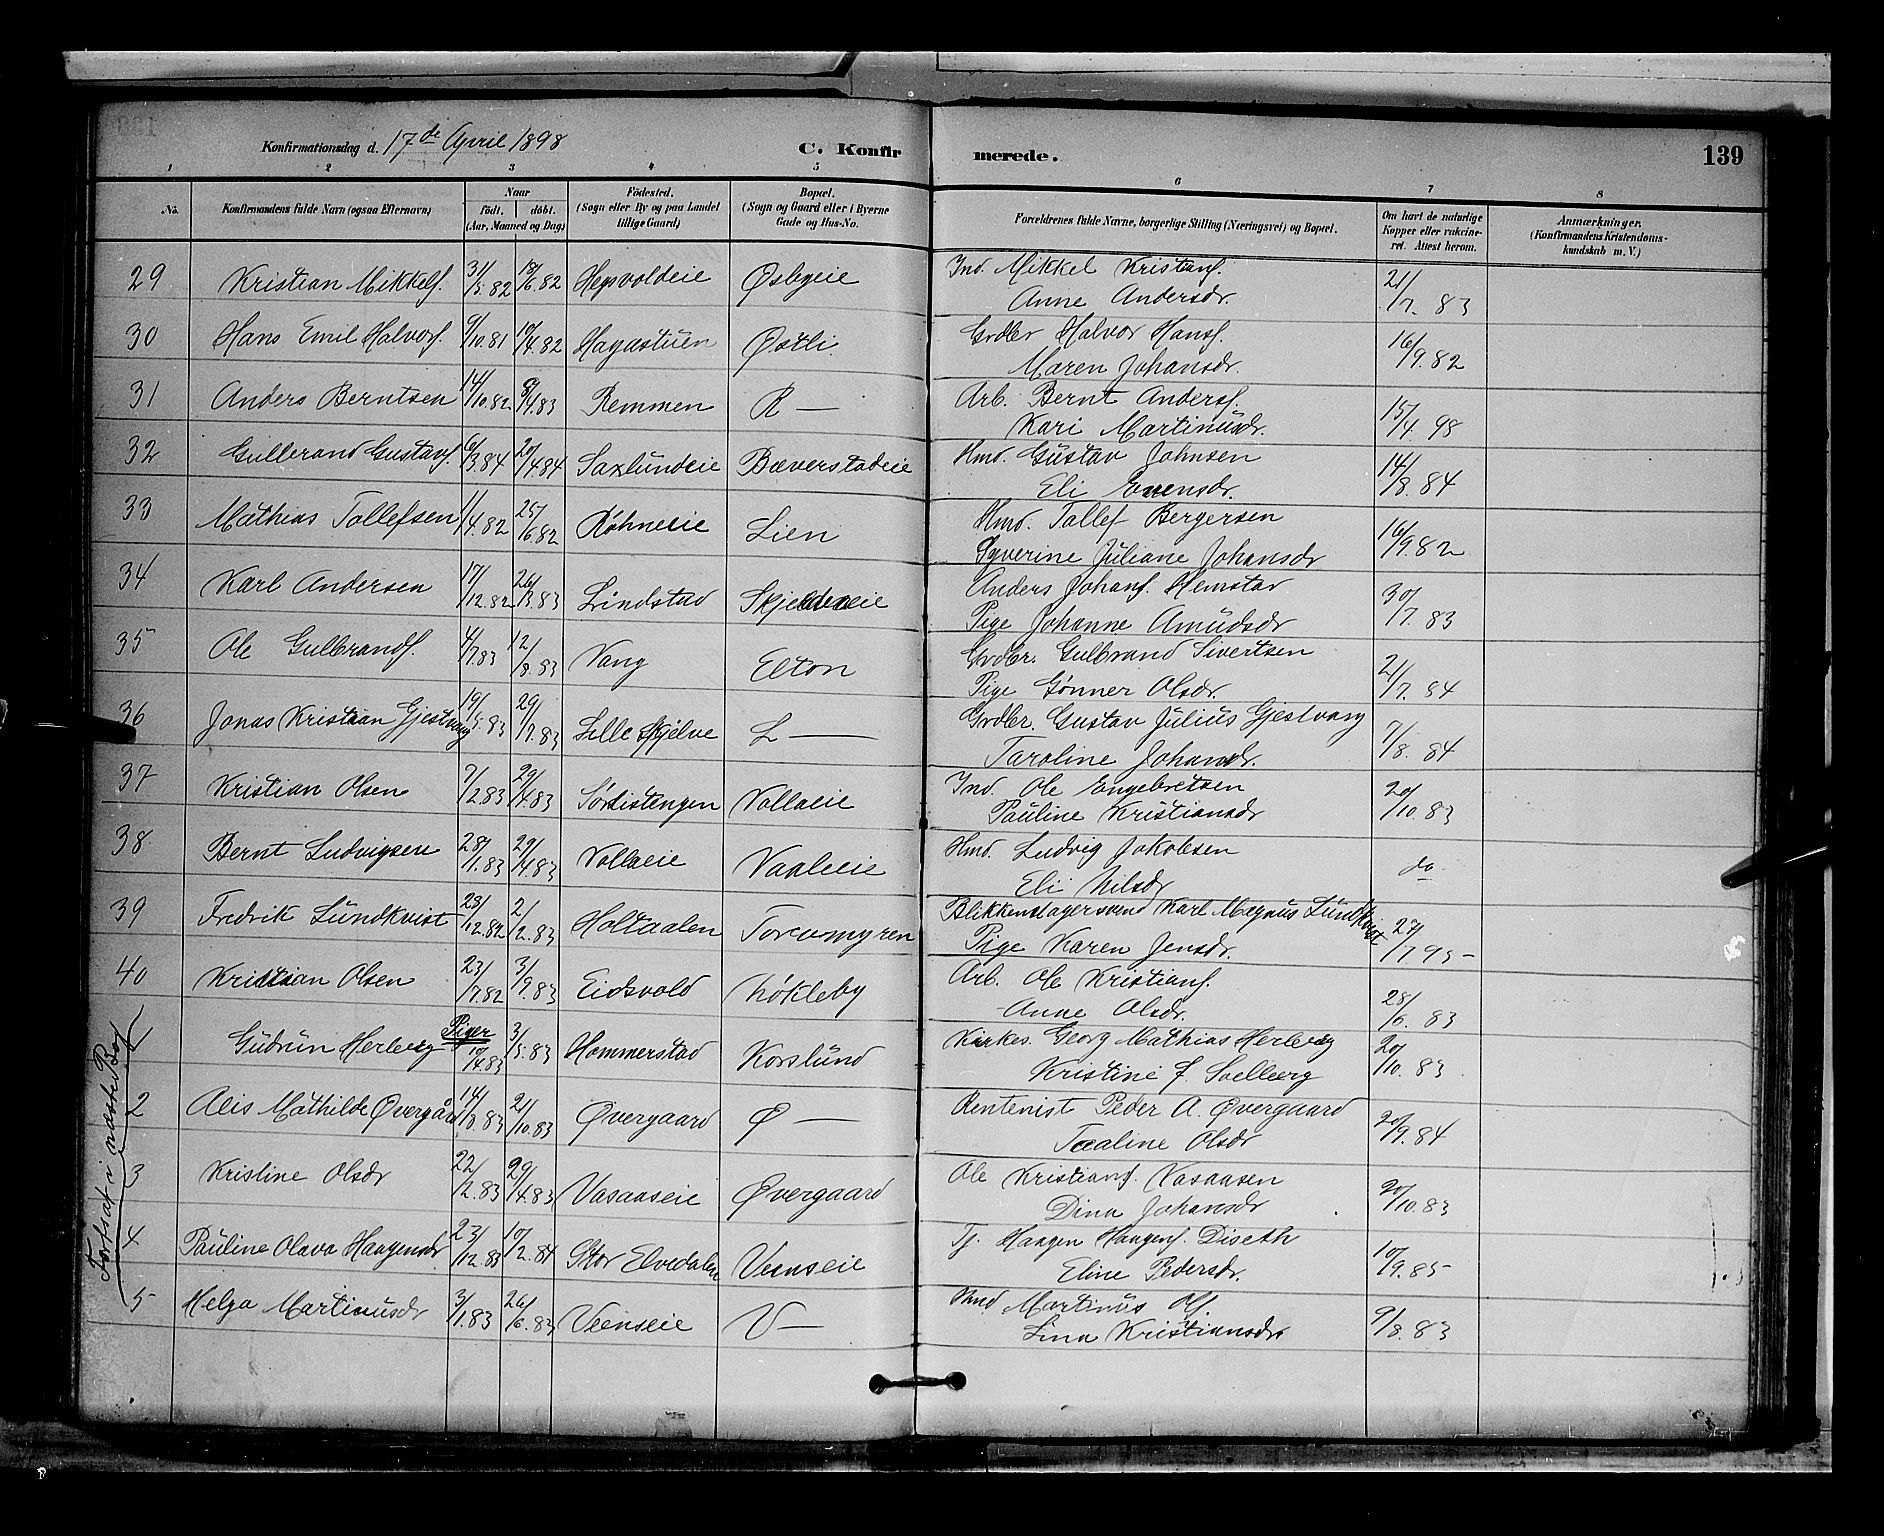 Konfirmationsdag d. 17de April 1898 C. Konfirmerede. 139
1 2 3 4 5 6 7 8
No. Konfirmandens fulde Navn (ogsaa Efternavn) Naar födt. döbt. (Aar, Maaned og Dag) Födested. (Sogn eller By og paa Landet tillige Gaard) Bopæl. (Sogn og Gaard eller i Byerne Gade og Hus-No. Forældrenes fulde Navne, borgerlige Stilling (Næringsvei) og Bopæl. Om havt de naturlige Kopper eller vakcineret. Attest herom. Anmærkninger. (Konfirmandens Kristendomskundskab m. V.)
29 Kristian Mikkels. 31/5.82 18/6.82 Hegsvoldeie Øsbyeie Ind. Mikkel Kristians. 21/7.83
Anne Andersdr.
30 Hans Emil Halvors. 9/10.81 10/4.82 Hagastuen Østli Grdbr Halvor Hans. 16/9.82
Maren Johansdr.
31 Anders Berntsen 14/10.82 8/4.83 Remmen R — Arb. Bernt Anders. 15/4.98
Kari Martinusdr.
32 Gulbrand Gustavs. 6/3.84 20/4.84 Saxlundeie Bæverstadeie Hmd. Gustav Johnsen 14/8.84
Eli Evensdr.
33 Mathias Tollefsen 11/4.82 25/6.82 Røhneeie Lien Hmd. Tollef Bergersen 16/9.82
Syverine Juliane Johansdr
34 Karl Andersen 17/12.82 26/3.83 Lindstad Skjeldeneie Anders Johans. Hemstad 30/7.83
Pige Johanne Amudsdr
35 Ole Gulbrands. 4/7.83 12/8.83 Vang Elton Grdbr. Gulbrand Sivertsen 21/7.84
Pige Gønner Olsdr.
36 Jonas Kristian Gjestvang 19/5.83 29/7.83 Lille Skjelve L — Grdbr. Gustav Julius Gjestvang 7/8.84
Taroline Johansdr.
37 Kristian Olsen 7/2.83 29/4.83 Sørlistengen Vollaeie Ind. Ole Engebretsen 20/10.83
Pauline Kristiansdr
38 Bernt Ludvigsen 28/1.83 29/4.83 Vollaeie Vaaleeie Hmd. Ludvig Jakobsen do
Eli Nilsdr
39 Fredrik Lundkvist 23/12.82 2/2.83 Holtaalen Torvmyren Blikkenslagersvend Karl Magnus Lundkvist 27/7 95
Pige Karen Jensdr.
40 Kristian Olsen 23/7.82 3/9.83 Eidsvold Løkleby Arb. Ole Kristians. 28/6.83
Anne Olsdr.
Piger
1 Gudrun Herberg 10/4.83 3/5.83 Hommerstad Korslund Kirkes. Georg Mathias Herberg 20/10.83
Kristine F. Solberg
2 Alis Mathilde Øvergård 14/8.83 21/10.83 Øvergaard Ø — Rentenist Peder A. Øvergaard 20/9.84
Olsdr
3 Kristine Olsdr 22/2.83 29/4.83 Vasaaseie Øvergaard Ole Kristians. Vasaasen 20/10.83
Dina Johansdr
4 Pauline Olava Haagensdr. 23/12.83 10/2.84 Stor Elvedalen Veenseie Tj. Haagen Haagens. Diseth 10/9.85
Eline Pedersdr.
5 Helga Martinusdr 3/1.83 26/6.83 Veenseie V — Hmd Martinus Ols. 9/8.83
Lina Kristiansdr
Fortsat i næste Bog